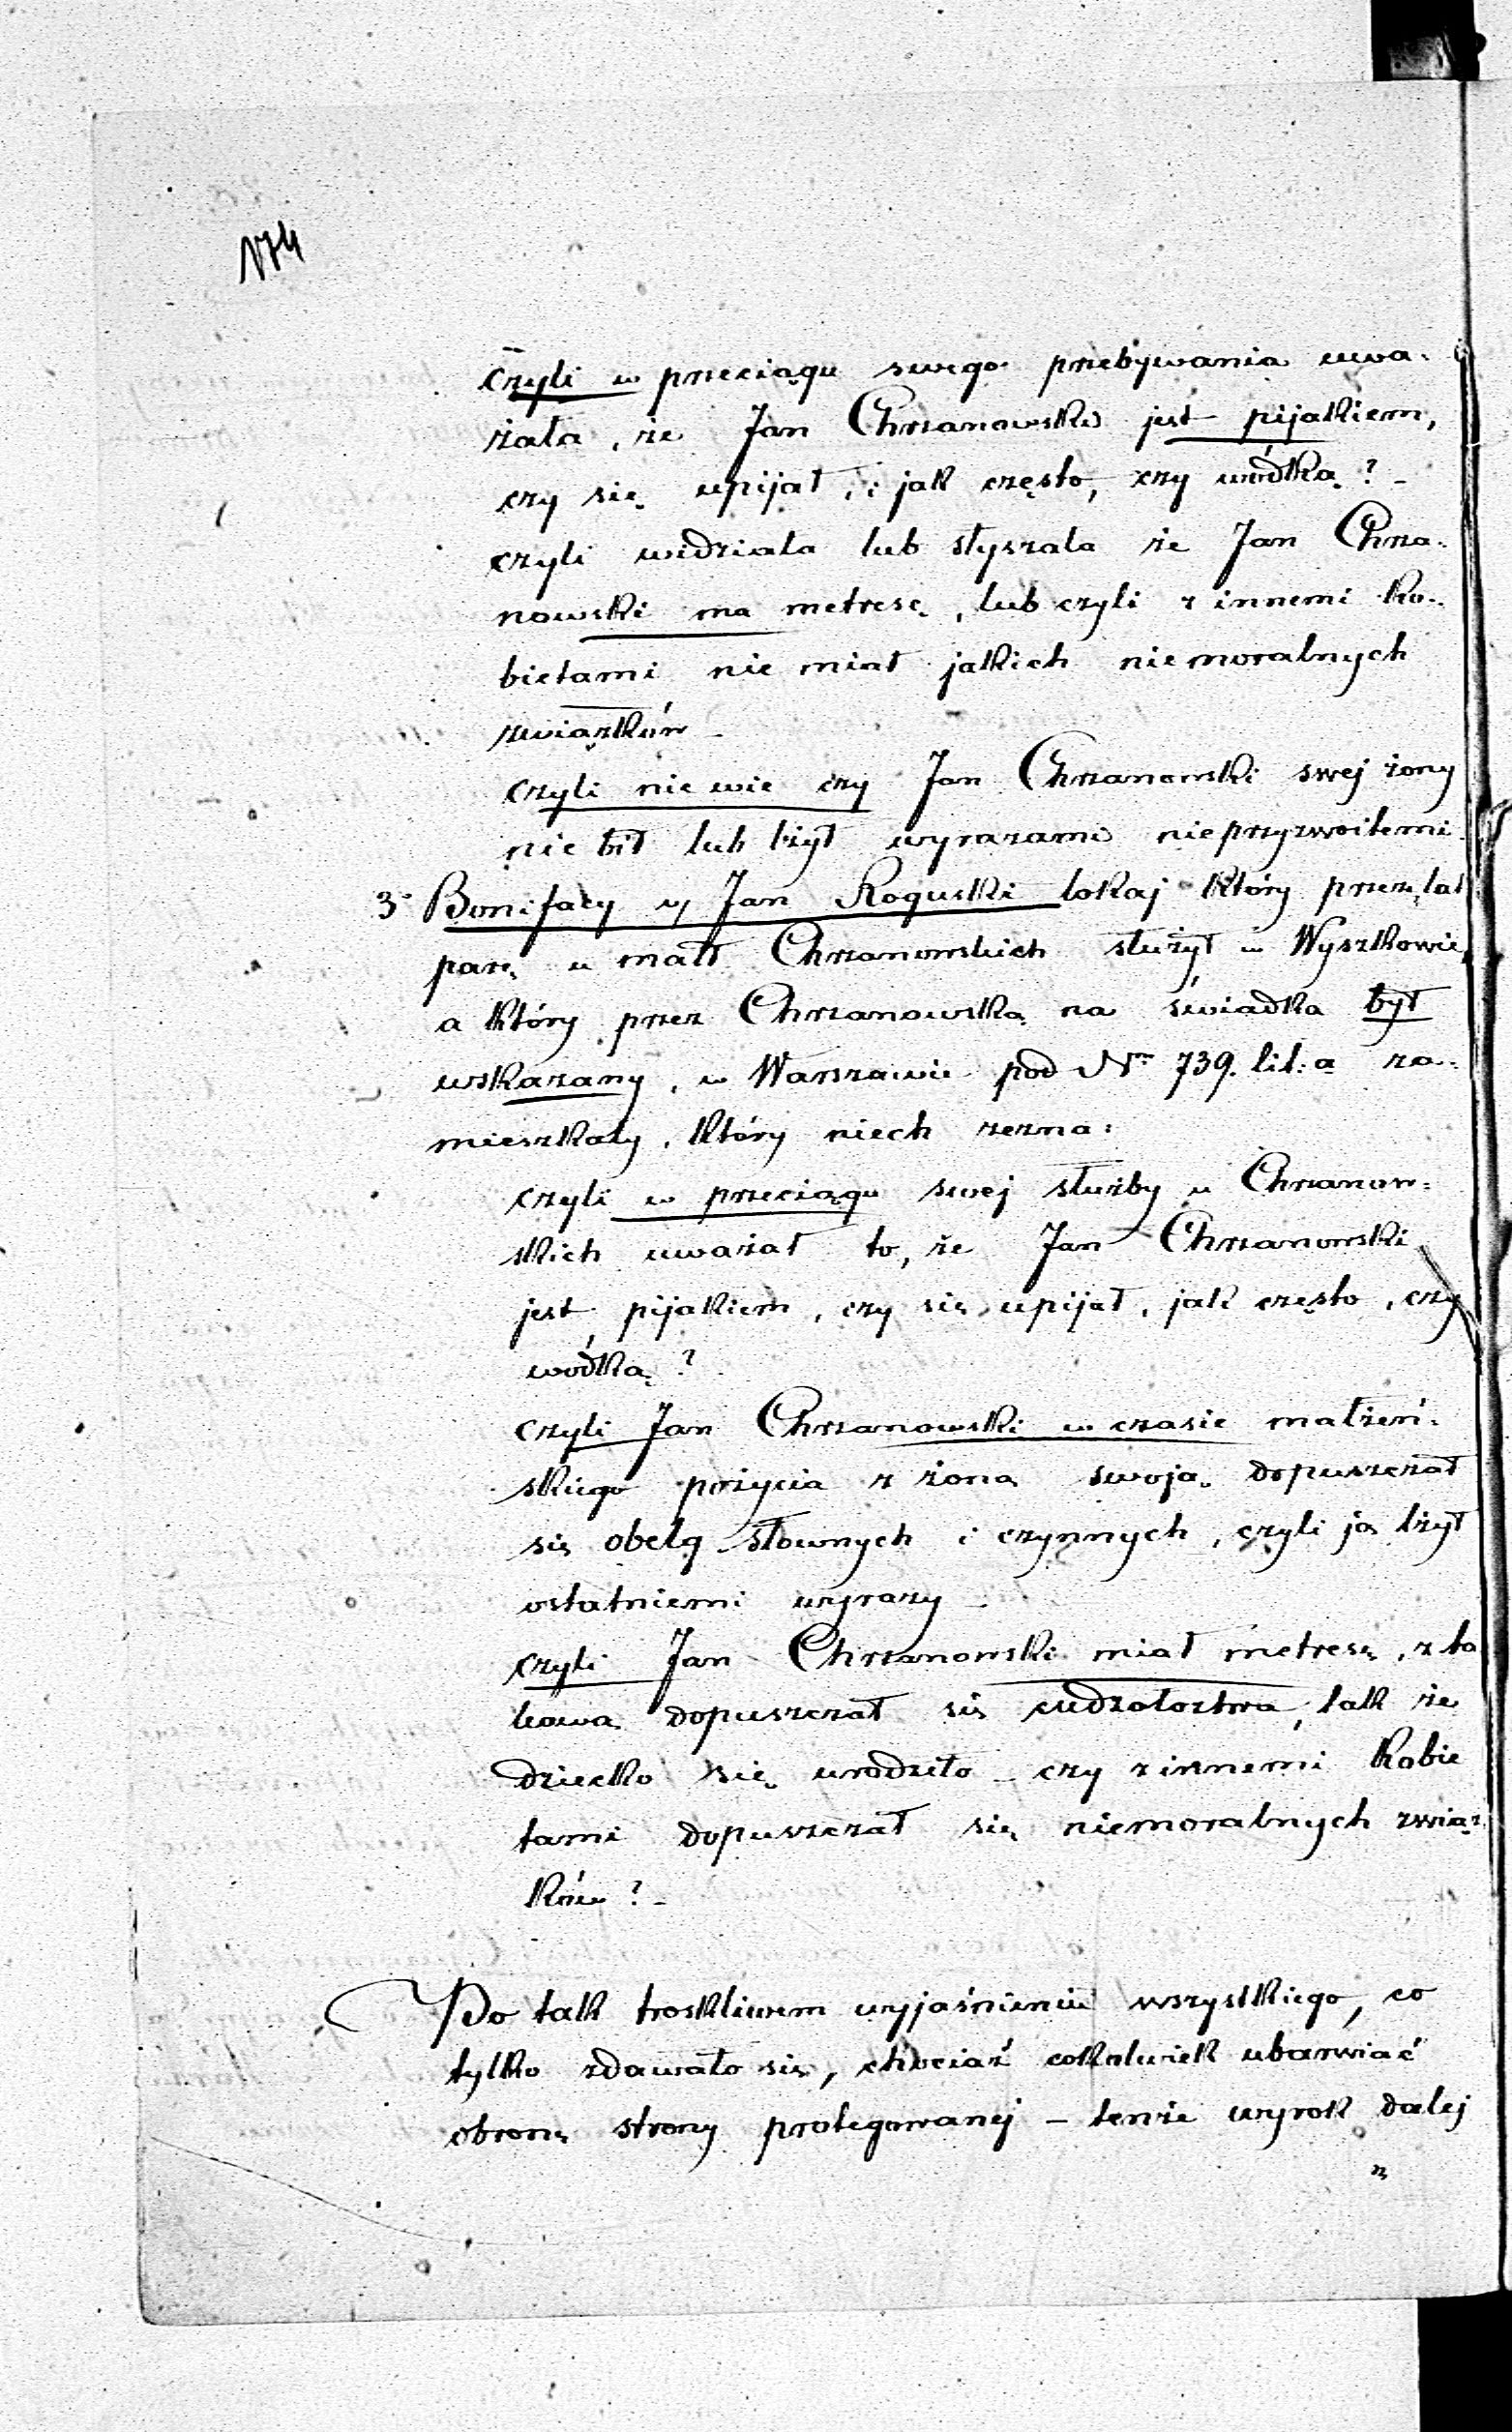 174
czyli w przeciągu swego przebywania uwa-
żała, że Jan Chrzanowski jest pijakiem,
czy się upijał, i jak często, czy wódką? -
czyli widziała lub słyszała że Jan Chrza-
nowski ma metresę, lub czyli z innemi ko-
bietami nie miał jakich niemoralnych
związków -
czyli nie wie czy Jan Chrzanowski swej żony
nie bił lub lżył wyrazami nieprzyzwoitemi.
3° Bonifacy v Jan Roguski lokaj który przez lat
parę u małż Chrzanowskich służył w Wyszkowie,
a który przez Chrzanowską na świadka był
wskazany, w Warszawie pod Nr 739. lit: a za-
mieszkały, który niech zezna:
czyli w przeciągu swej służby u Chrzanow-
skich uważał to, że Jan Chrzanowski
jest pijakiem, czy się upijał, jak często, czy
wódką?
czyli Jan Chrzanowski w czasie małżeń-
skiego pożycia z żoną swoją dopuszczał
się obelg słownych i czynnych, czyli ją lżył
ostatniemi wyrazy -
czyli Jan Chrzanowski miał metresę, z ta
kową dopuszczał się cudzołoztwa, tak że
dziecko się urodziło - czy z innemi kobie
tami dopuszczał się niemoralnych związ
ków? -
Po tak troskliwem wyjaśnieniu wszystkiego, co
tylko zdawało się, chociaż cokolwiek ubarwiać
obronę strony protegowanej - tenże wyrok dalej